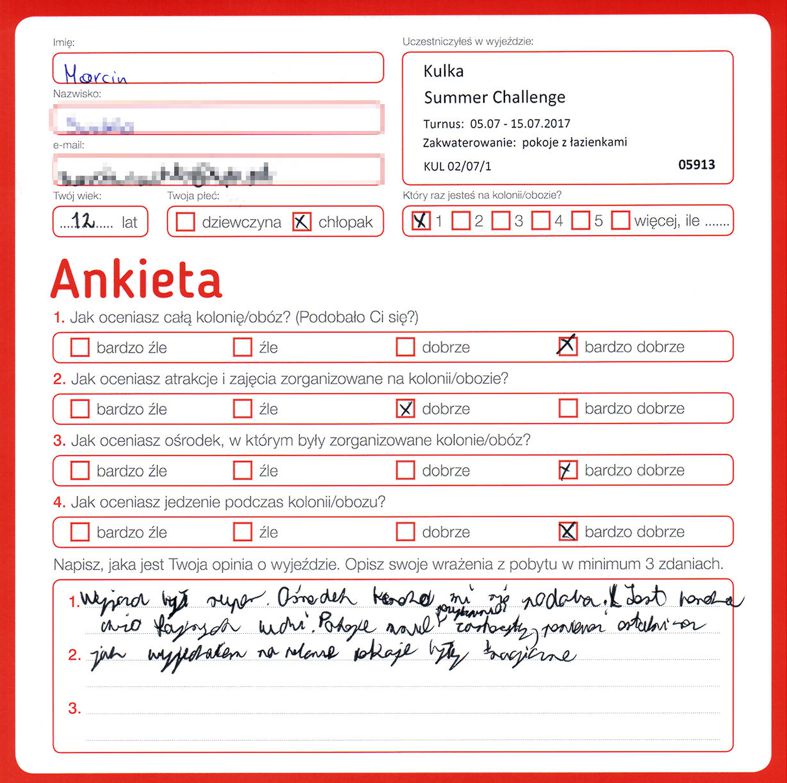 Imię:
Marcin
Nazwisko:
e-mail:
Twój wiek:
....12..... lat
Twoja płeć:
dziewczyna chłopak
Uczestniczyłeś w wyjeździe:
Kulka
Summer Challenge
Turnus: 05.07 - 15.07.2017
Zakwaterowanie: pokoje z łazienkami
KUL 02/07/1 05913
Który raz jesteś na kolonii/obozie?
1 2 3 4 5 więcej, ile .......
Ankieta
1. Jak oceniasz całą kolonię/obóz? (Podobało Ci się?)
bardzo źle źle dobrze bardzo dobrze
2. Jak oceniasz atrakcje i zajęcia zorganizowane na kolonii/obozie?
bardzo źle źle dobrze bardzo dobrze
3. Jak oceniasz ośrodek, w którym były zorganizowane kolonie/obóz?
bardzo źle źle dobrze bardzo dobrze
4. Jak oceniasz jedzenie podczas kolonii/obozu?
bardzo źle źle dobrze bardzo dobrze
Napisz, jaka jest Twoja opinia o wyjeździe. Opisz swoje wrażenia z pobytu w minimum 3 zdaniach.
1. Wyjazd był super. Ośrodek mi się podoba. Jest
fajnych ludzi. Pokoje ponieważ
2. jak wyjechałem na były tragiczne
3.